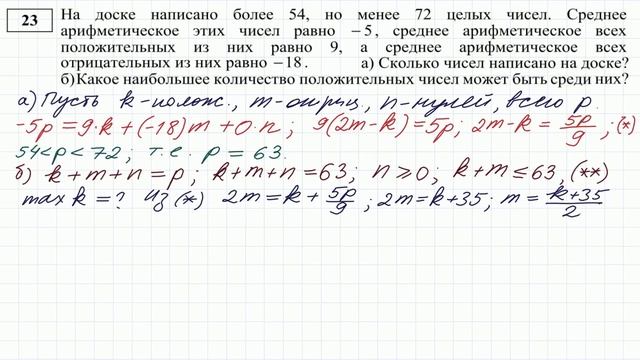 23
На доске написано более 54, но менее 72 целых чисел. Среднее
арифметическое этих чисел равно −5, среднее арифметическое всех
положительных из них равно 9, а среднее арифметическое всех
отрицательных из них равно −18. а) Сколько чисел написано на доске?
б)Какое наибольшее количество положительных чисел может быть среди них?
а) Пусть k-полож., m-отриц, n-нулей, всего p.
-5p = 9·k + (-18)m + 0·n; 9(2m-k) = 5p; 2m-k = 5p/9; (*)
54<p<72; т.е. p = 63.
б) k+m+n = p; k+m+n = 63; n ≥ 0; k+m ≤ 63, (**)
max k = ? Из (*) 2m = k + 5p/9; 2m = k+35; m = k+35/2